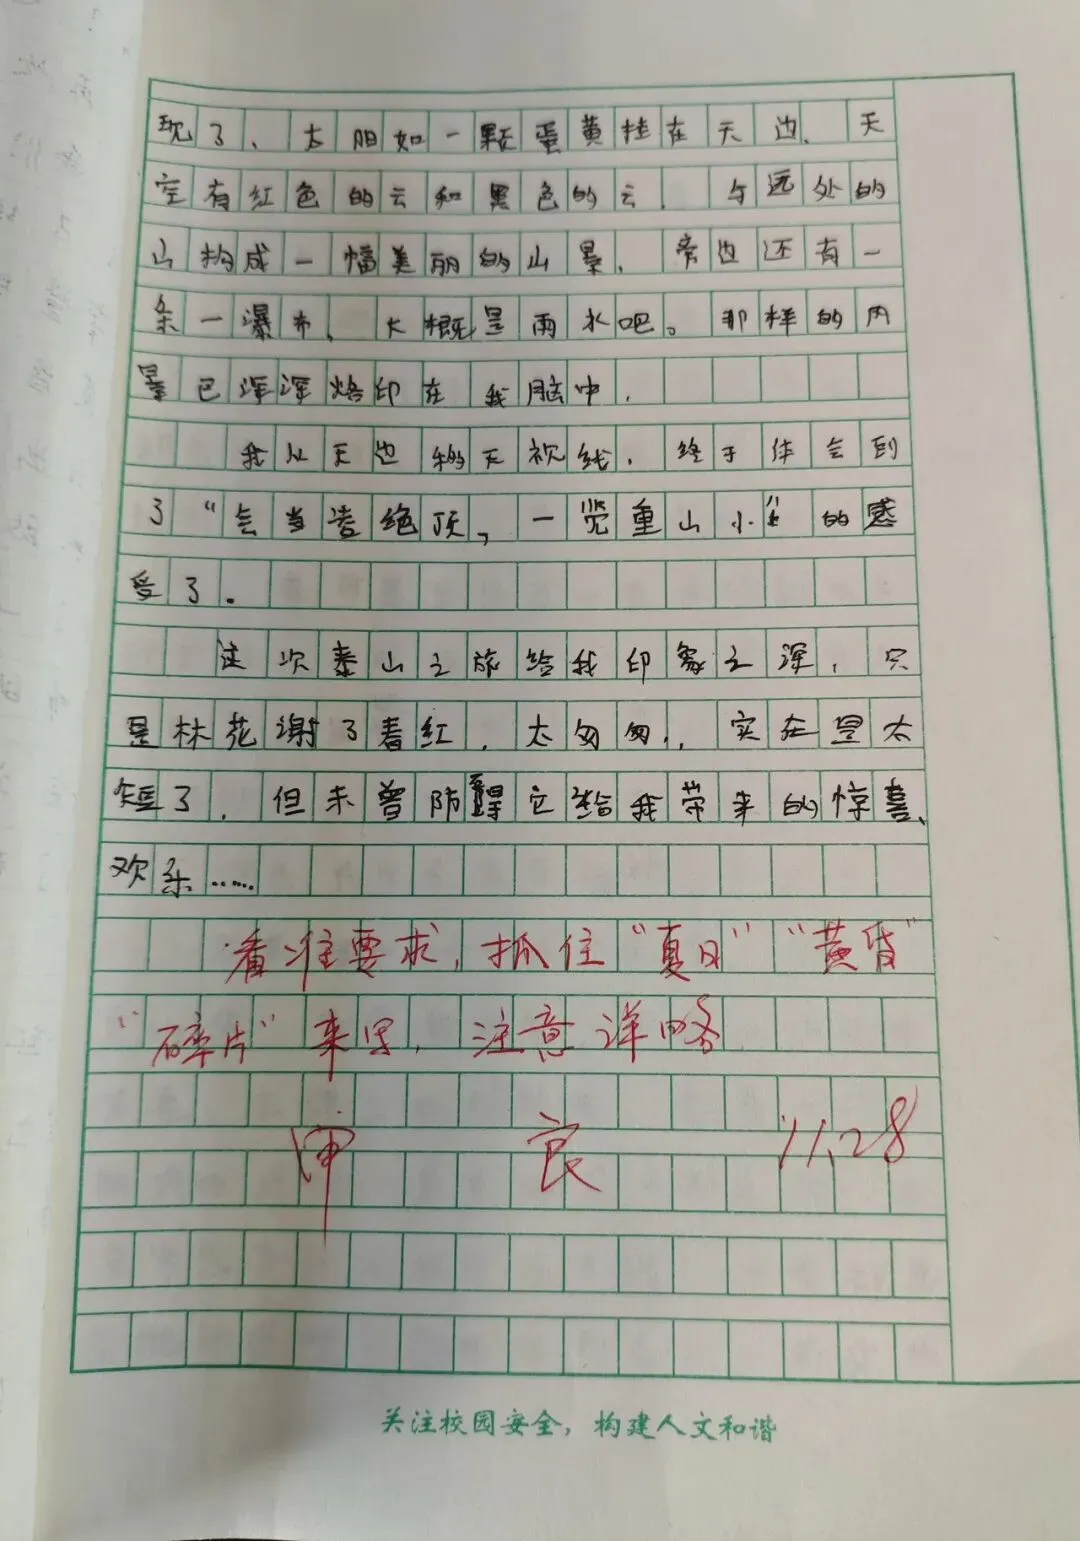 现了、太阳如一颗蛋黄挂在天边、天
空有红色的云和黑色的云．与远处的
山构成一幅美丽的山景．旁边还有一
条一瀑布、大概是雨水吧。那样的内
景已深深烙印在我脑中．
我从天边的天视线．终于体会到
了“会当凌绝顶，一览重山小”的感
受了．
这次泰山之旅给我印象之深，只
是林花谢了春红．太匆匆，．实在是太
短了．但未曾防碍它给我带来的惊喜、
欢乐……
看准要求，抓住“夏日”“黄昏”
“碎片”来写，注意详略
良 11.28
关注校园安全，构建人文和谐